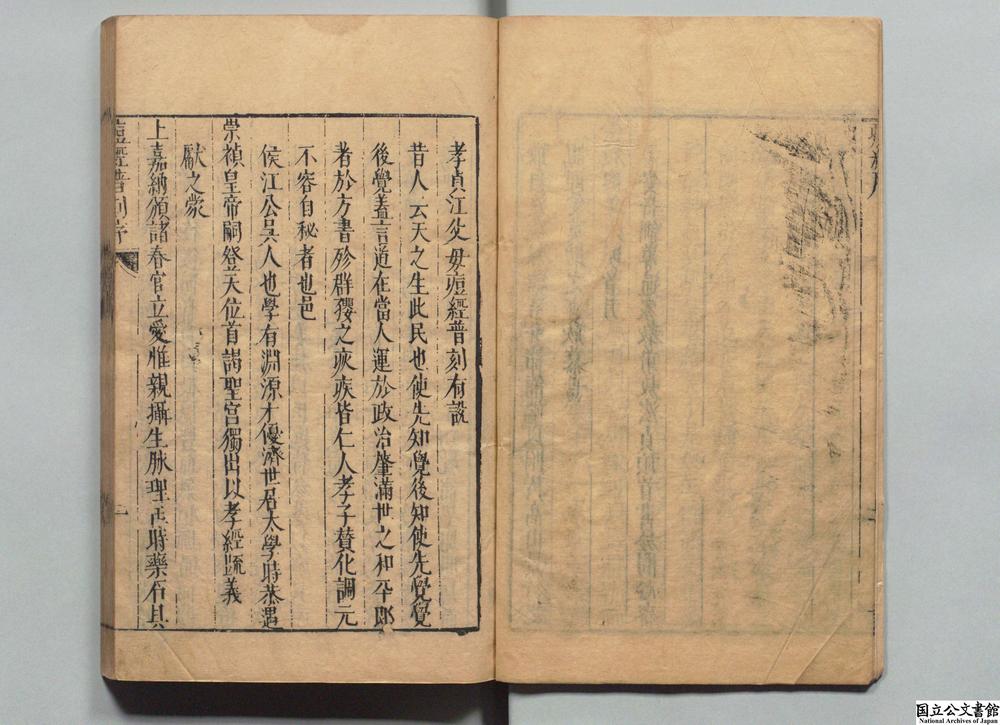 孝貞江父毋痘經普刻有說
昔人云天之生此民也使先知覺後知使先覺覺
後覺蓋言道在當人運於政治肇滿世之和平郎
者於方書殄群孾之疢疾皆仁人孝子賛化調元
不容自秘者也邑
侯江公吳人也學有淵源才優濟世君太學時恭遇
崇禎皇帝嗣登大位首謁聖宮獨出以孝經䟽義
獻之蒙
上嘉納頒諸春官立愛惟親攝生脉理正時藥石具
痘經普刻序
一
国立公文書館
National Archives of Japan